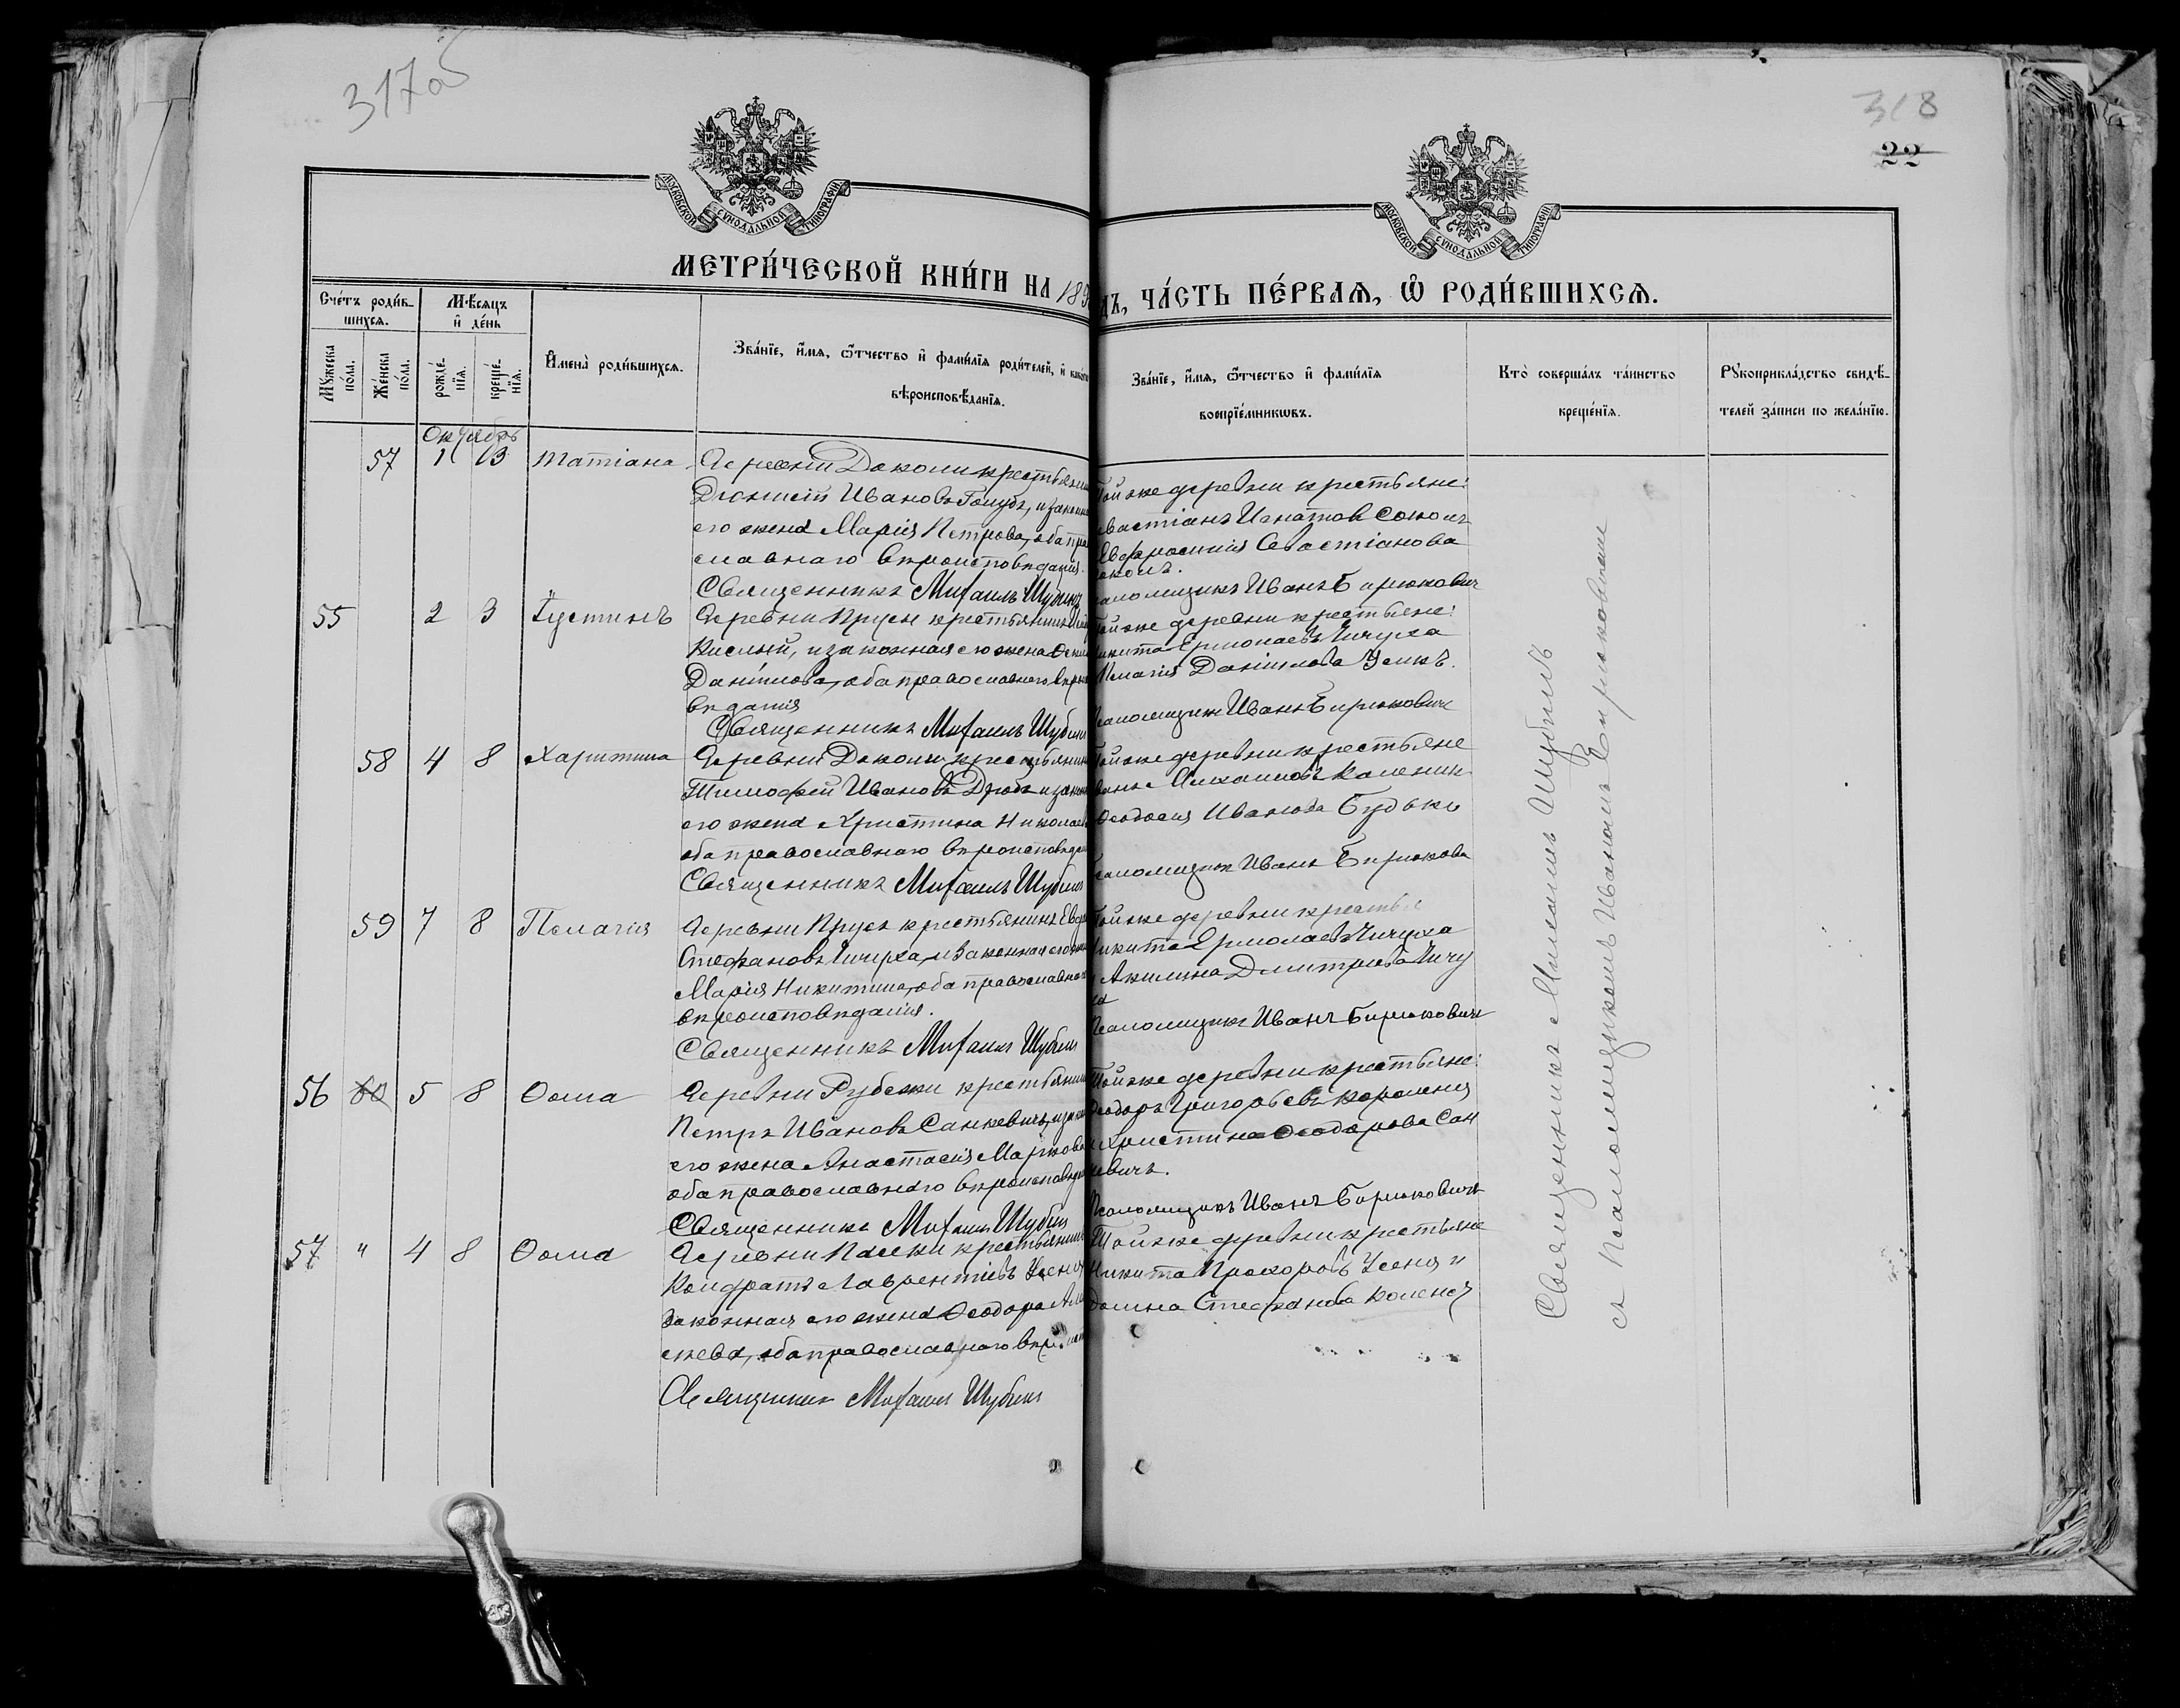 317об
318
22
МОСКОВСКОЙ СѴНОДАЛЬНОЙ ТИПОГРАФІИ
МОСКОВСКОЙ СѴНОДАЛЬНОЙ ТИПОГРАФІИ
МЕТРИ́ЧЕСКОЙ КНИ́ГИ НА 189
ДЪ, ЧА́СТЬ ПЕ́РВАѦ, Ѡ҆ РОДИ́ВШИХСѦ.
Сче́тъ роди́в-
шихсѧ.
Мѣ́сяцъ
и҆ де́нь
Мꙋ́жеска
по́ла.
Же́нска
по́ла.
рожде́-
нїѧ.
креще́-
нїѧ.
И҆мена̀ роди́вшихсѧ.
Зва́нїе, и҆́мѧ, ѻ҆́тчество и҆ фами́лїѧ роди́телей, и҆ како́гѡ
вѣроисповѣ́данїѧ.
Зва́нїе, и҆́мѧ, ѻ҆́тчество и҆ фами́лїѧ
воспрїе́мникѡвъ.
Кто̀ соверша́лъ та́инство
креще́нїѧ.
Рꙋкоприкла́дство свидѣ́-
телей за́писи по жела́нїю.
Октябрь
57 1 3 Татіана Деревни Доколи крестьянин
Діонисій Ивановъ Голубъ, и законн
его жена Марія Петрова, оба пра
славнаго вѣроисповѣданія.
Священникъ Михаилъ Шубинъ
Той же деревни крестьяне:
евастіанъ Игнатов Соколъ
Евфросинія Севастіанова
околъ.
саломщикъ Иванъ Бирюкович
55 2 3 Іустинъ Деревни Прусы крестьянинъ
Кислый, и законная его жена
Даніилова, оба православнаго вѣрои
вѣданія
Священникъ Михаилъ Шубинъ
Той же деревни крестьяне:
икита Ермолаевъ Чичуха
Пелагія Даніилова Усикъ.
Псаломщикъ Иванъ Бирюкович
58 4 8 Харитина Деревни Доколи крестьянин
Тимофей Ивановъ Дробъ и законн
его жена Христина Николаев
оба православнаго вѣроисповѣдан
Священникъ Михаилъ Шубинъ
Той же деревни крестьяне
ванъ Михаиловъ Каленик
Ѳеодосия Иванова Будько
саломщикъ Иванъ Бирюкова
59 7 8 Пелагія Деревни Прусы крестьянинъ Евд
Стефановъ Чичуха, и законная его жен
Марія Никитина, оба православнаго
вѣроисповѣданія.
Священникъ Михаилъ Шубинъ
Той же деревни крестья
икита Ермолаевъ Чичуха
и Акилина Дмитріева Чичу
ха
Псаломщикъ Иванъ Бирюковичъ
56 60 5 8 Ѳома Деревни Рубежи крестьянин
Петръ Ивановъ Санкевичъ, и зак
его жена Анастасія Маркова
оба православнаго вѣроисповѣдан
Священникъ Михаилъ Шубинъ
Той же деревни крестьяне:
Ѳеодоръ Григорьевъ
и Христина Ѳеодорова Сан
кевичъ.
Псаломщикъ Иванъ Бирюковичъ
57 " 4 8 Ѳома Деревни Пасеки крестьянинъ
Кондратъ Лаврентіевъ Усеня
законная его жена Ѳеодора Але
ксеева, оба православнаго вѣроисп
Священникъ Михаилъ Шубинъ
Той же деревни крестьяне
Никита Прохоровъ Усеня и
Домна Стефанова
Священникъ Михаилъ Шубинъ
съ Псаломщикомъ Иваномъ Бирюковичемъ